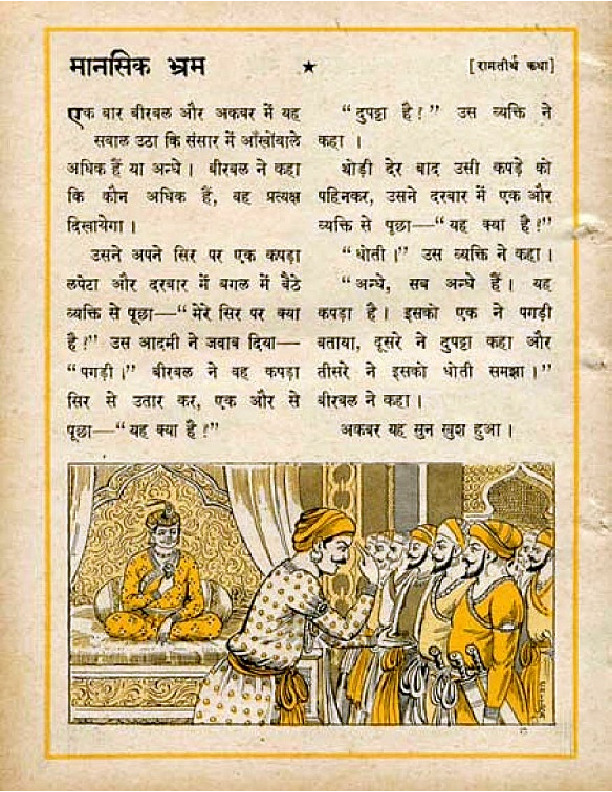 मानसिक भ्रम ★ [रामतीर्थ कथा]
एक बार बीरबल और अकबर में यह
सवाल उठा कि संसार में आँखोंवाले
अधिक हैं या अन्धे। बीरबल ने कहा
कि कौन अधिक हैं, वह प्रत्यक्ष
दिखायेगा।
उसने अपने सिर पर एक कपड़ा
लपेटा और दरबार में बगल में बैठे
व्यक्ति से पूछा—“मेरे सिर पर क्या
है?” उस आदमी ने जवाब दिया—
“पगड़ी।” बीरबल ने वह कपड़ा
सिर से उतार कर, एक और से
पूछा—“यह क्या है?”
“दुपट्टा है!” उस व्यक्ति ने
कहा।
थोड़ी देर बाद उसी कपड़े को
पहिनकर, उसने दरबार में एक और
व्यक्ति से पूछा—“यह क्या है?”
“धोती।” उस व्यक्ति ने कहा।
“अन्धे, सब अन्धे हैं। यह
कपड़ा है। इसको एक ने पगड़ी
बताया, दूसरे ने दुपट्टा कहा और
तीसरे ने इसको धोती समझा।”
बीरबल ने कहा।
अकबर यह सुन खुश हुआ।